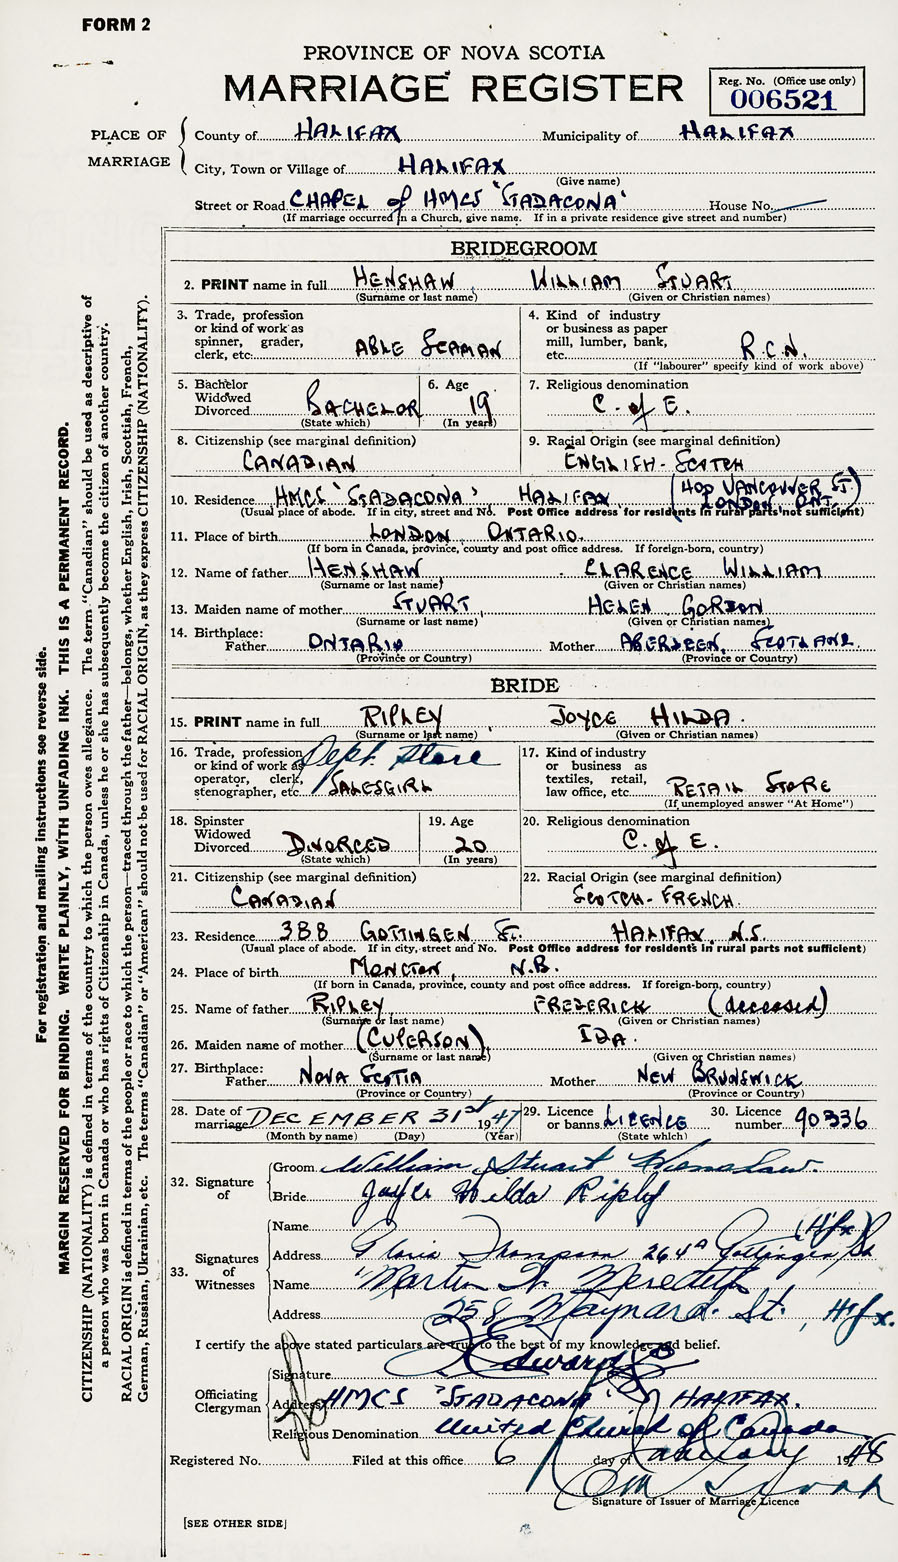 FORM 2
PROVINCE OF NOVA SCOTIA
MARRIAGE REGISTER
Reg. No. (Office use only)
006521
PLACE OF MARRIAGE
County of HALIFAX Municipality of HALIFAX
City, Town or Village of HALIFAX
(Give name)
Street or Road CHAPEL of HMCS 'STADACONA' House No.
(If marriage occurred in a Church, give name. If in a private residence give street and number)
BRIDEGROOM
2. PRINT name in full HENSHAW, WILLIAM STUART
(Surname or last name) (Given or Christian names)
3. Trade, profession or kind of work as spinner, grader, clerk, etc. ABLE SEAMAN
4. Kind of industry or business as paper mill, lumber, bank, etc. R.C.N.
(If "labourer" specify kind of work above)
5. Bachelor Widowed Divorced BACHELOR
(State which)
6. Age 19
(In years)
7. Religious denomination
C. of E.
8. Citizenship (see marginal definition)
CANADIAN
9. Racial Origin (see marginal definition)
ENGLISH-SCOTCH
10. Residence HMCS 'STADACONA' HALIFAX (400 VANCOUVER ST. LONDON, ONT.)
(Usual place of abode. If in city, street and No. Post Office address for residents in rural parts not sufficient)
11. Place of birth LONDON, ONTARIO.
(If born in Canada, province, county and post office address. If foreign-born, country)
12. Name of father HENSHAW CLARENCE WILLIAM
(Surname or last name) (Given or Christian names)
13. Maiden name of mother STUART, HELEN GORDON
(Surname or last name) (Given or Christian names)
14. Birthplace:
Father ONTARIO Mother ABERDEEN, SCOTLAND.
(Province or Country) (Province or Country)
BRIDE
15. PRINT name in full RIPLEY, JOYCE HILDA.
(Surname or last name) (Given or Christian names)
16. Trade, profession or kind of work as operator, clerk, stenographer, etc. Dept. Store SALESGIRL
17. Kind of industry or business as textiles, retail, law office, etc. RETAIL STORE
(If unemployed answer "At Home")
18. Spinster Widowed Divorced DIVORCED
(State which)
19. Age 20
(In years)
20. Religious denomination
C. of E.
21. Citizenship (see marginal definition)
CANADIAN
22. Racial Origin (see marginal definition)
SCOTCH-FRENCH.
23. Residence 388 GOTTINGEN ST. HALIFAX, N.S.
(Usual place of abode. If in city, street and No. Post Office address for residents in rural parts not sufficient)
24. Place of birth MONCTON, N.B.
(If born in Canada, province, county and post office address. If foreign-born, country)
25. Name of father RIPLEY FREDERICK (deceased)
(Surname or last name) (Given or Christian names)
26. Maiden name of mother (CULPERSON) IDA.
(Surname or last name) (Given or Christian names)
27. Birthplace:
Father NOVA SCOTIA Mother NEW BRUNSWICK
(Province or Country) (Province or Country)
28. Date of marriage DECEMBER 31st 1947
(Month by name) (Day) (Year)
29. Licence or banns LICENCE
(State which)
30. Licence number 90336
32. Signature of
Groom William Stuart Henshaw.
Bride Joyce Hilda Ripley
33. Signatures of Witnesses
Name (Hfx)
Address Gloria Thompson 264A Gottingen St
Name Martin W. Meredith
Address 258 Maynard St., Hfx.
I certify the above stated particulars are true to the best of my knowledge and belief.
Officiating Clergyman
Signature Edwards
Address HMCS 'STADACONA' HALIFAX.
Religious Denomination United Church of Canada
Registered No. Filed at this office 6 day of January 1948
Signature of Issuer of Marriage Licence
[SEE OTHER SIDE]
For registration and mailing instructions see reverse side.
MARGIN RESERVED FOR BINDING. WRITE PLAINLY, WITH UNFADING INK. THIS IS A PERMANENT RECORD.
CITIZENSHIP (NATIONALITY) is defined in terms of the country to which the person owes allegiance. The term "Canadian" should be used as descriptive of
a person who was born in Canada or who has rights of Citizenship in Canada, unless he or she has subsequently become the citizen of another country.
RACIAL ORIGIN is defined in terms of the people or race to which the person—traced through the father—belongs, whether English, Irish, Scottish, French,
German, Russian, Ukrainian, etc. The terms "Canadian" or "American" should not be used for RACIAL ORIGIN, as they express CITIZENSHIP (NATIONALITY).